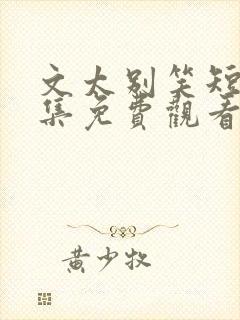 文太别笑短
集免費觀看
黄少牧